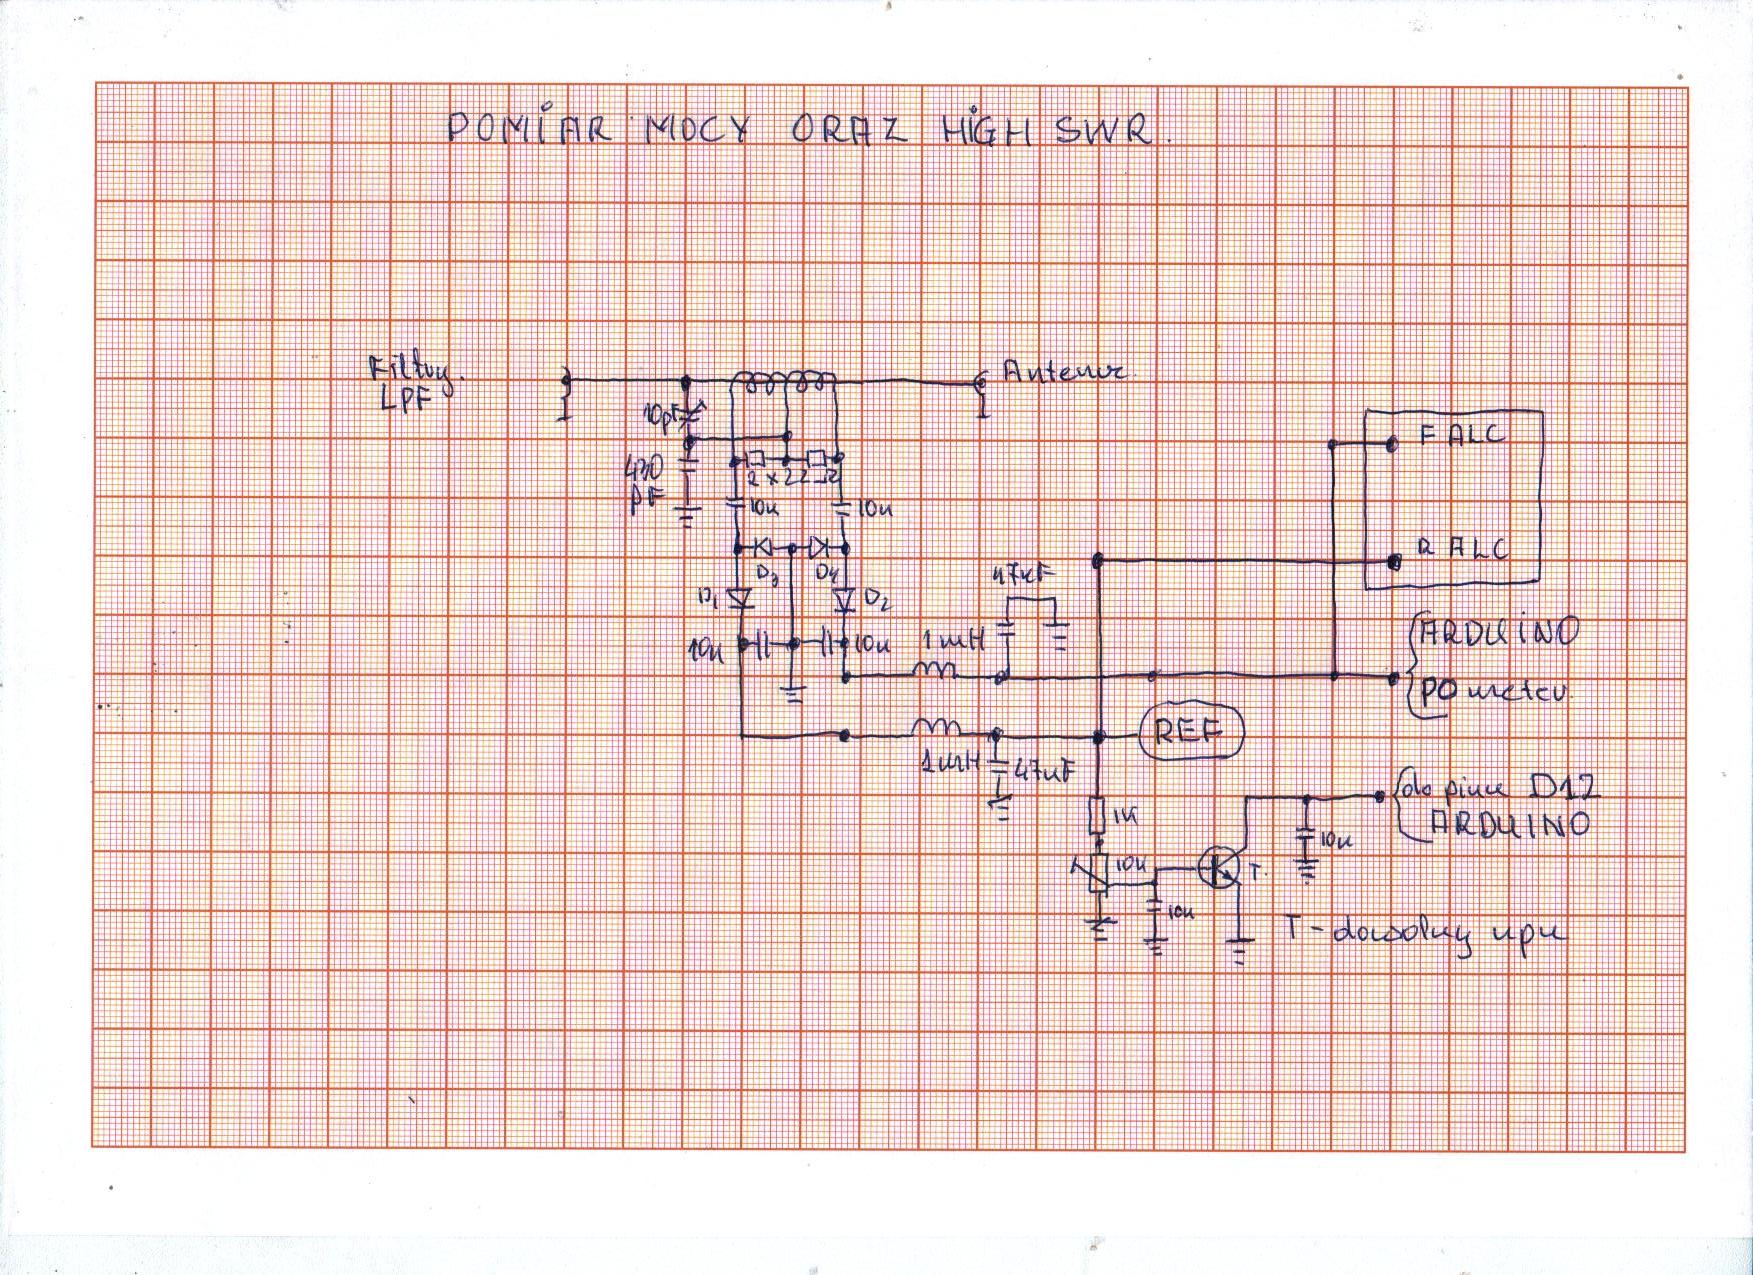 POMIAR MOCY ORAZ HIGH SWR.
Filtry.
LPF
Antena
10pF
430
pF
2x22Ω
10n
10n
F ALC
R ALC
D3
D4
D1
D2
47nF
10n
10n
1mH
ARDUINO
PO meter
REF
1mH
47nF
do pinu D12
ARDUINO
1K
10n
10K
T.
10n
T - dowolny npn